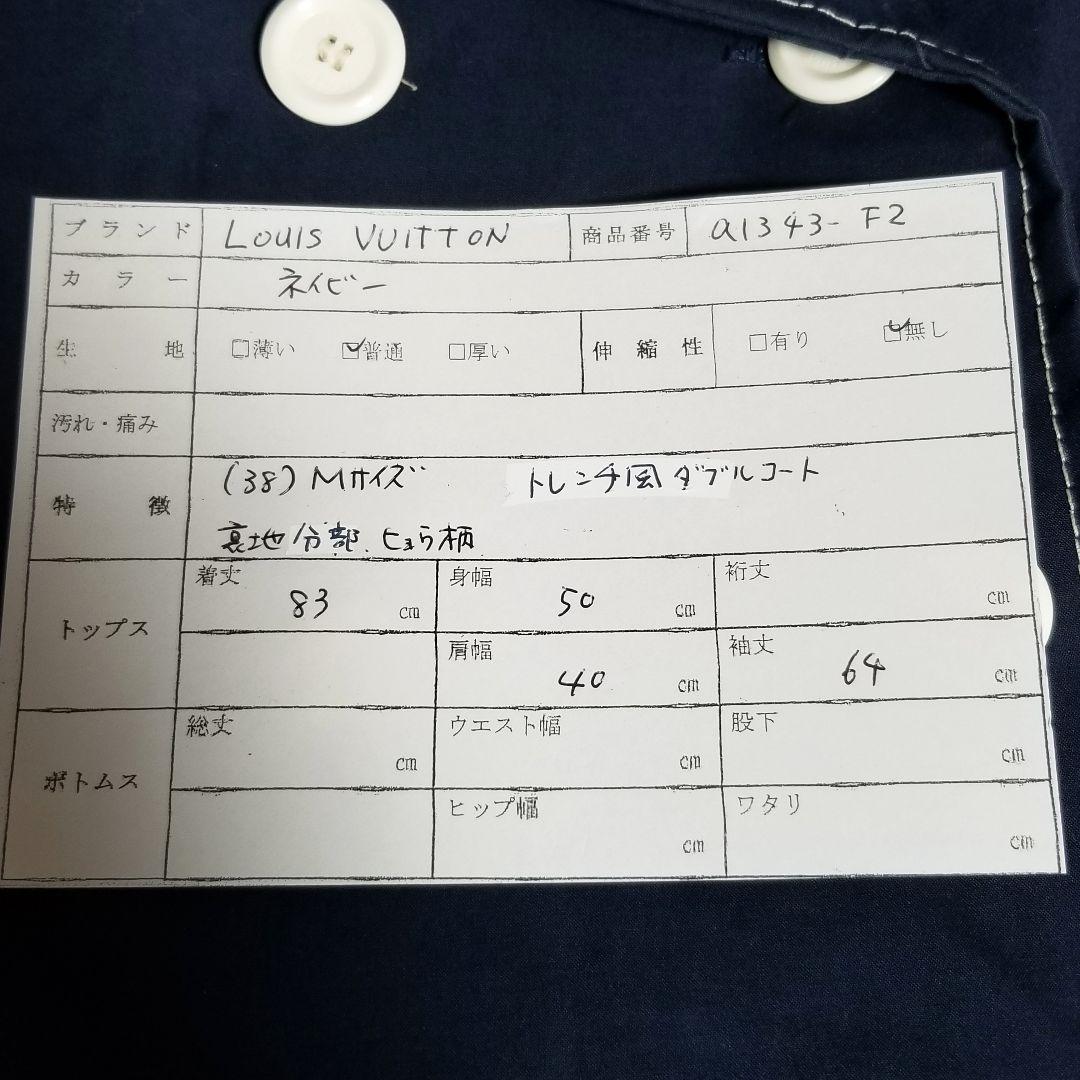 ブランド LOUIS VUITTON 商品番号 a1343-F2
カラー ネイビー
生地 □薄い ☑普通 □厚い 伸縮性 □有り ☑無し
汚れ・痛み
特徴 (38) Mサイズ トレンチ風ダブルコート
裏地分部、ヒョウ柄
トップス 着丈 83 cm 身幅 50 cm 裄丈 cm
肩幅 40 cm 袖丈 64 cm
ボトムス 総丈 cm ウエスト幅 cm 股下 cm
ヒップ幅 cm ワタリ cm